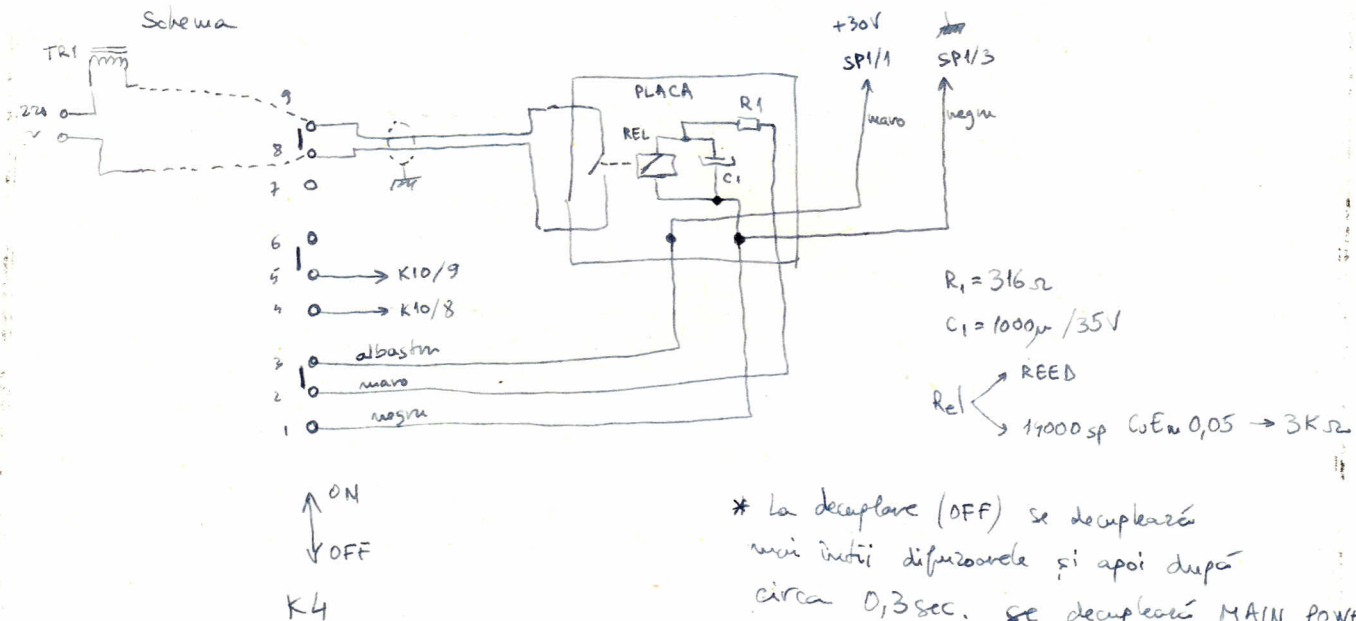 Schema
TR1
220
V
9
8
7
6
5
4
3
2
1
K10/9
K10/8
albastru
maro
negru
PLACA
REL
R1
C1
+30V
SP1/1
SP1/3
maro
negru
R₁ = 316 Ω
C₁ = 1000μ /35V
Rel
REED
17000 sp CuEm 0,05 → 3KΩ
ON
OFF
K4
* La decuplare (OFF) se decuplează
mai întîi difuzoarele și apoi după
circa 0,3 sec. se decuplează MAIN POW